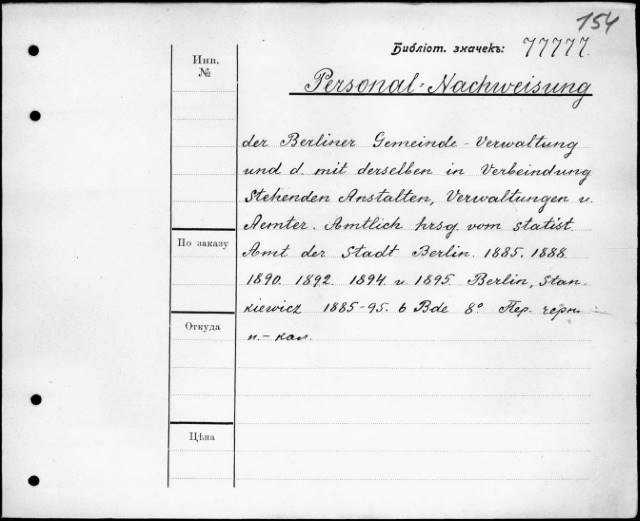 154
Библіот. значекъ: 77777.
Инв.
№
Personal-Nachweisung
der Berliner Gemeinde-Verwaltung
und d. mit derselben in Verbeindung
Stehenden Anstalten, Verwaltungen u.
Aemter. Amtlich hrsg. vom statist.
По заказу
Amt der Stadt Berlin. 1885. 1888.
1890. 1892. 1894. u. 1895. Berlin, Stan-
kiewicz 1885-95. 6 Bde 8° Пер. черн.
Откуда
и.-кал.
Цѣна